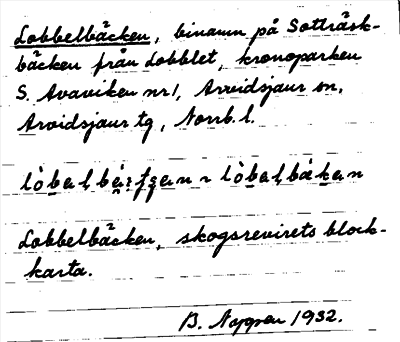 Lobbelbäcken, binamn på Sotträsk-
bäcken från Lobblet, kronoparken
S. Avaviken nr 1, Arvidsjaur sn,
Arvidsjaur tg, Norrb. l.
Lobbelbäcken, skogsrevirets block-
karta.
B. 1932.